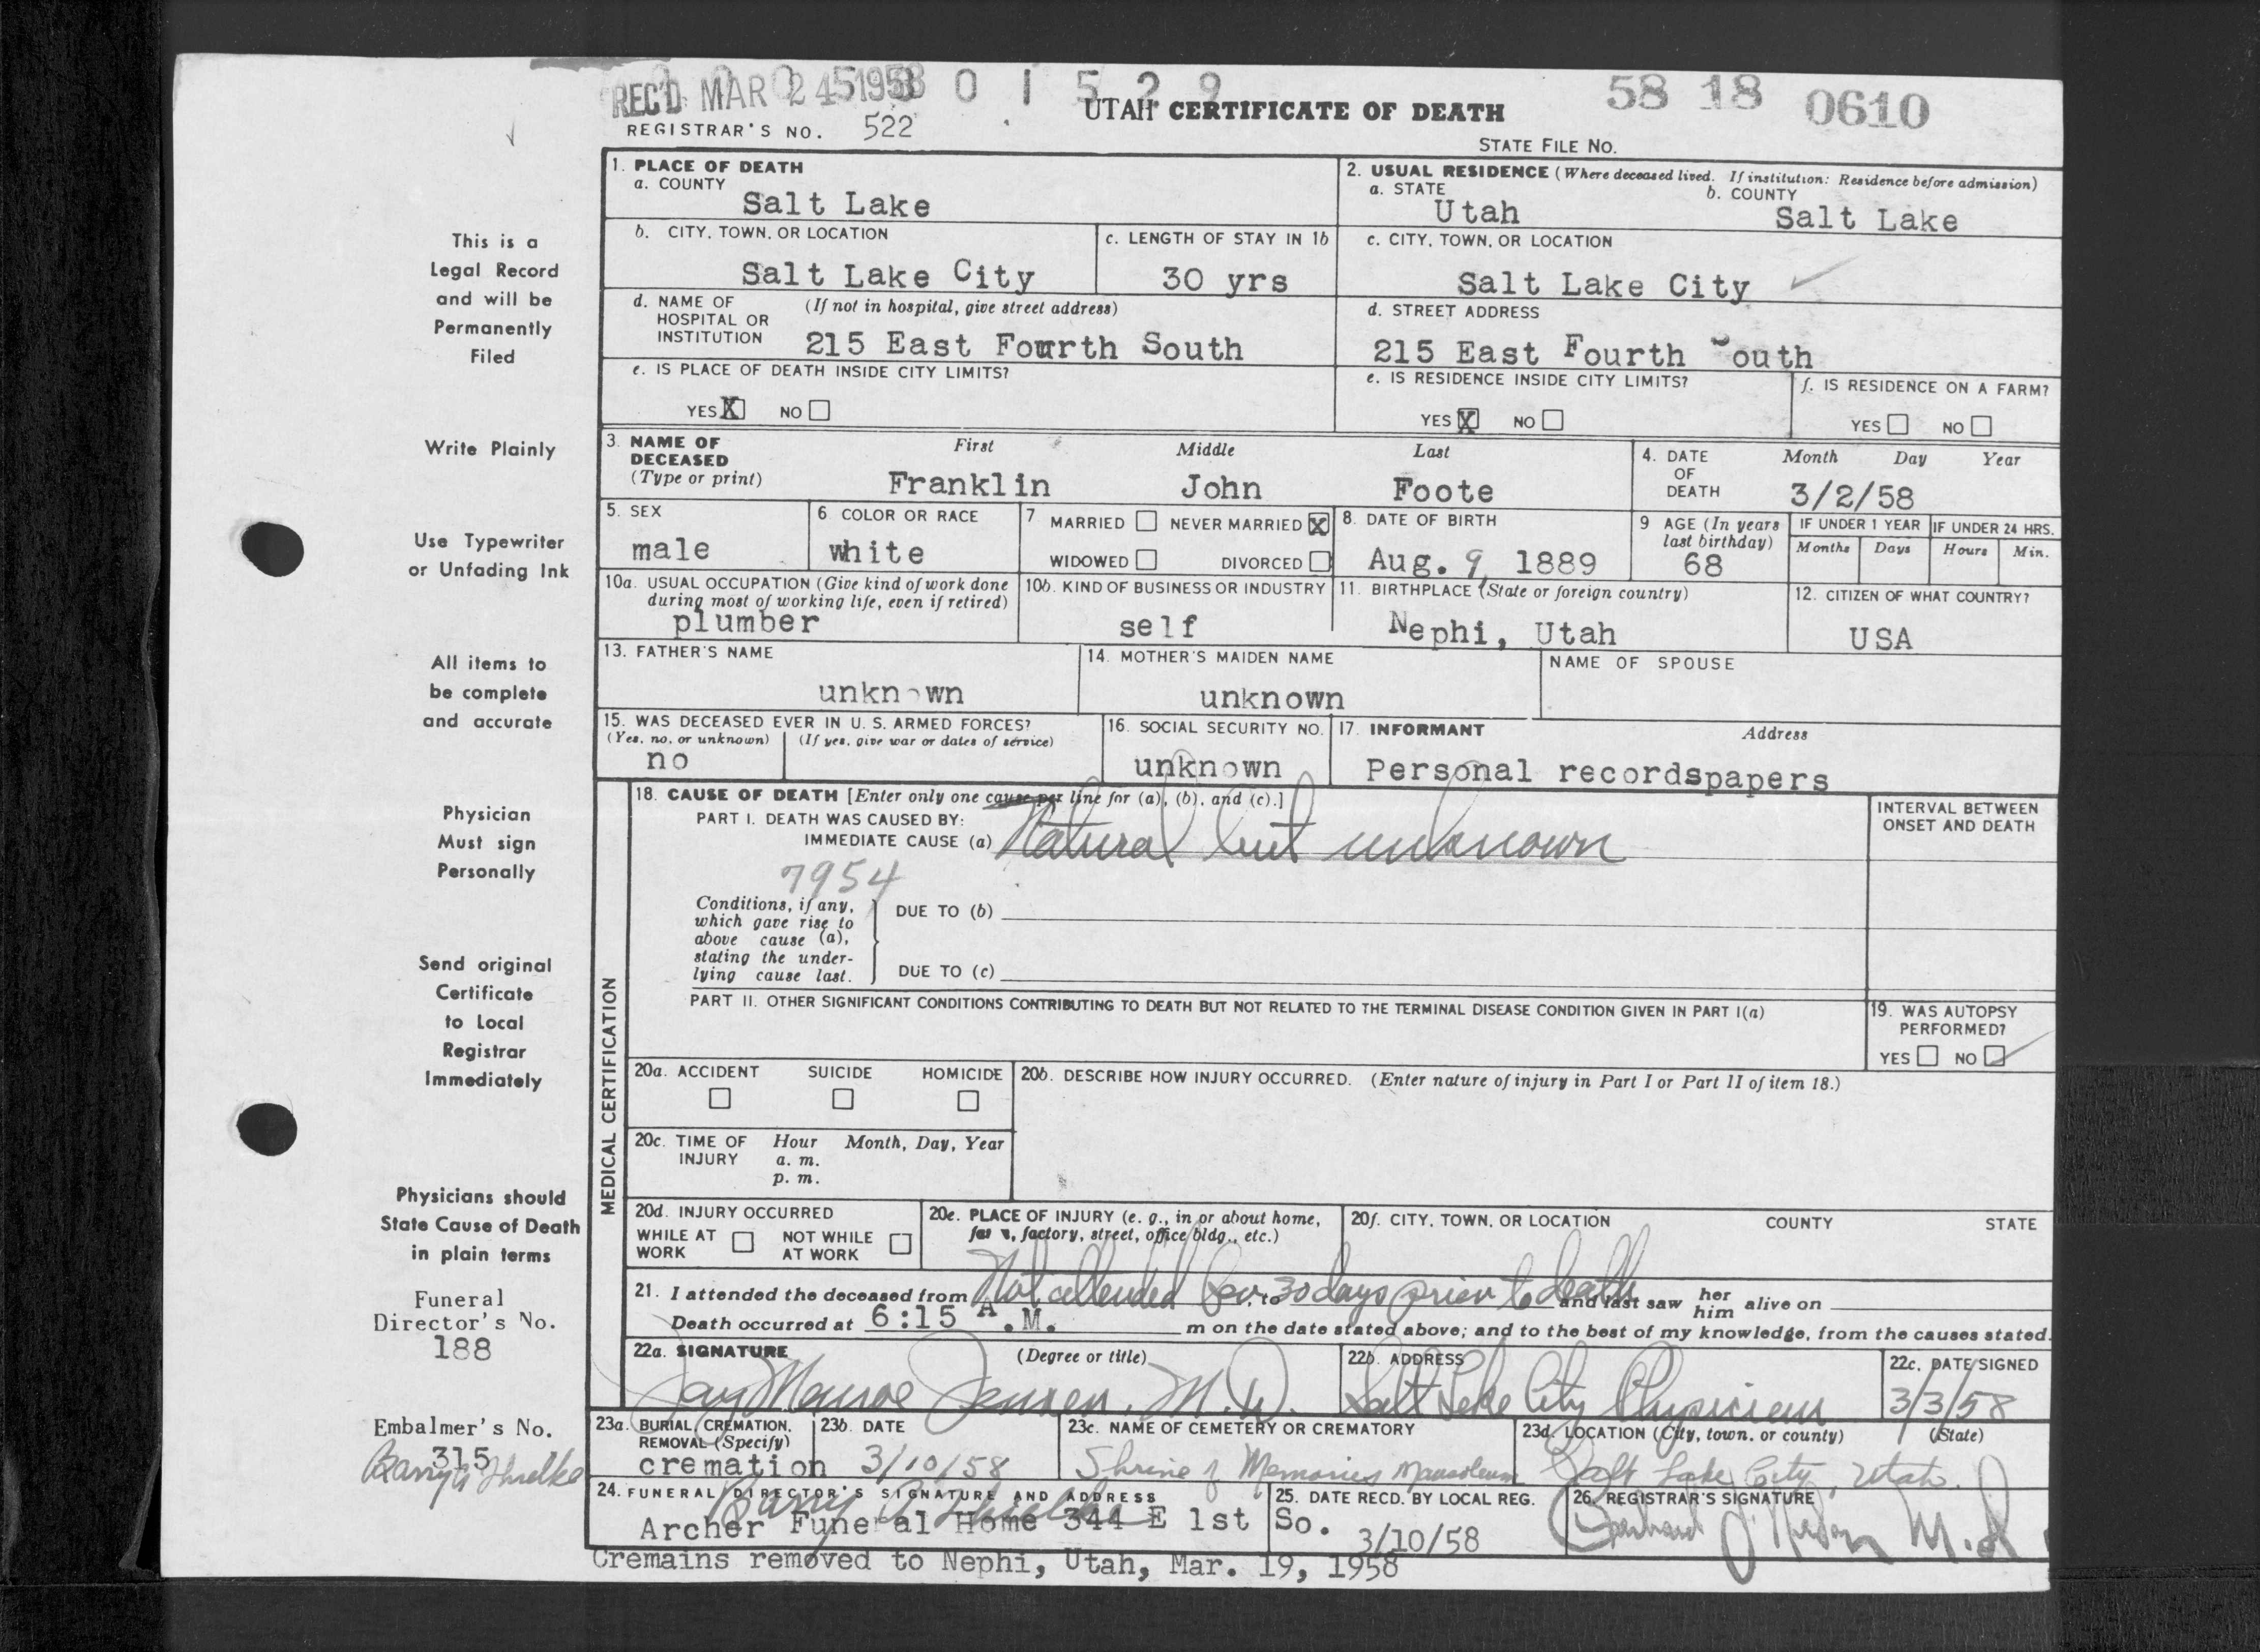 REC'D MAR 24 1958 0 1 5 2 9
UTAH CERTIFICATE OF DEATH
58 18 0610
REGISTRAR'S NO. 522
STATE FILE NO.
1. PLACE OF DEATH
a. COUNTY
Salt Lake
2. USUAL RESIDENCE (Where deceased lived. If institution: Residence before admission)
a. STATE b. COUNTY
Utah Salt Lake
b. CITY, TOWN, OR LOCATION
Salt Lake City
c. LENGTH OF STAY IN 1b
30 yrs
c. CITY, TOWN, OR LOCATION
Salt Lake City
d. NAME OF HOSPITAL OR INSTITUTION (If not in hospital, give street address)
215 East Fourth South
d. STREET ADDRESS
215 East Fourth South
e. IS PLACE OF DEATH INSIDE CITY LIMITS?
YES X NO
e. IS RESIDENCE INSIDE CITY LIMITS?
YES X NO
f. IS RESIDENCE ON A FARM?
YES NO
3. NAME OF DECEASED (Type or print)
First Middle Last
Franklin John Foote
4. DATE OF DEATH
Month Day Year
3/2/58
5. SEX
male
6 COLOR OR RACE
white
7 MARRIED NEVER MARRIED X
WIDOWED DIVORCED
8. DATE OF BIRTH
Aug. 9, 1889
9 AGE (In years last birthday)
68
IF UNDER 1 YEAR IF UNDER 24 HRS.
Months Days Hours Min.
10a. USUAL OCCUPATION (Give kind of work done during most of working life, even if retired)
plumber
10b. KIND OF BUSINESS OR INDUSTRY
self
11. BIRTHPLACE (State or foreign country)
Nephi, Utah
12. CITIZEN OF WHAT COUNTRY?
USA
13. FATHER'S NAME
unknown
14. MOTHER'S MAIDEN NAME
unknown
NAME OF SPOUSE
15. WAS DECEASED EVER IN U. S. ARMED FORCES?
(Yes, no, or unknown) (If yes, give war or dates of service)
no
16. SOCIAL SECURITY NO.
unknown
17. INFORMANT Address
Personal recordspapers
MEDICAL CERTIFICATION
18. CAUSE OF DEATH [Enter only one cause per line for (a), (b), and (c).]
PART I. DEATH WAS CAUSED BY:
IMMEDIATE CAUSE (a) Natural but unknown
INTERVAL BETWEEN ONSET AND DEATH
7954
Conditions, if any, which gave rise to above cause (a), stating the underlying cause last.
DUE TO (b)
DUE TO (c)
PART II. OTHER SIGNIFICANT CONDITIONS CONTRIBUTING TO DEATH BUT NOT RELATED TO THE TERMINAL DISEASE CONDITION GIVEN IN PART I(a)
19. WAS AUTOPSY PERFORMED?
YES NO
20a. ACCIDENT SUICIDE HOMICIDE
20b. DESCRIBE HOW INJURY OCCURRED. (Enter nature of injury in Part I or Part II of item 18.)
20c. TIME OF INJURY Hour Month, Day, Year
a. m.
p. m.
20d. INJURY OCCURRED
WHILE AT WORK NOT WHILE AT WORK
20e. PLACE OF INJURY (e. g., in or about home, farm, factory, street, office bldg., etc.)
20f. CITY, TOWN, OR LOCATION COUNTY STATE
21. I attended the deceased from Not attended for, to 30 days prior to death and last saw her him alive on
Death occurred at 6:15 A.M. m on the date stated above; and to the best of my knowledge, from the causes stated.
22a. SIGNATURE (Degree or title)
Jay Monroe Jensen, M.D.
22b. ADDRESS
Salt Lake City Physician
22c. DATE SIGNED
3/3/58
23a. BURIAL, CREMATION, REMOVAL (Specify)
cremation
23b. DATE
3/10/58
23c. NAME OF CEMETERY OR CREMATORY
Shrine of Memories Mausoleum
23d. LOCATION (City, town, or county) (State)
Salt Lake City, Utah.
24. FUNERAL DIRECTOR'S SIGNATURE AND ADDRESS
Archer Funeral Home 344 E 1st So.
25. DATE RECD. BY LOCAL REG.
3/10/58
26. REGISTRAR'S SIGNATURE
M.D
Cremains removed to Nephi, Utah, Mar. 19, 1958
This is a
Legal Record
and will be
Permanently
Filed
Write Plainly
Use Typewriter
or Unfading Ink
All items to
be complete
and accurate
Physician
Must sign
Personally
Send original
Certificate
to Local
Registrar
Immediately
Physicians should
State Cause of Death
in plain terms
Funeral
Director's No.
188
Embalmer's No.
315